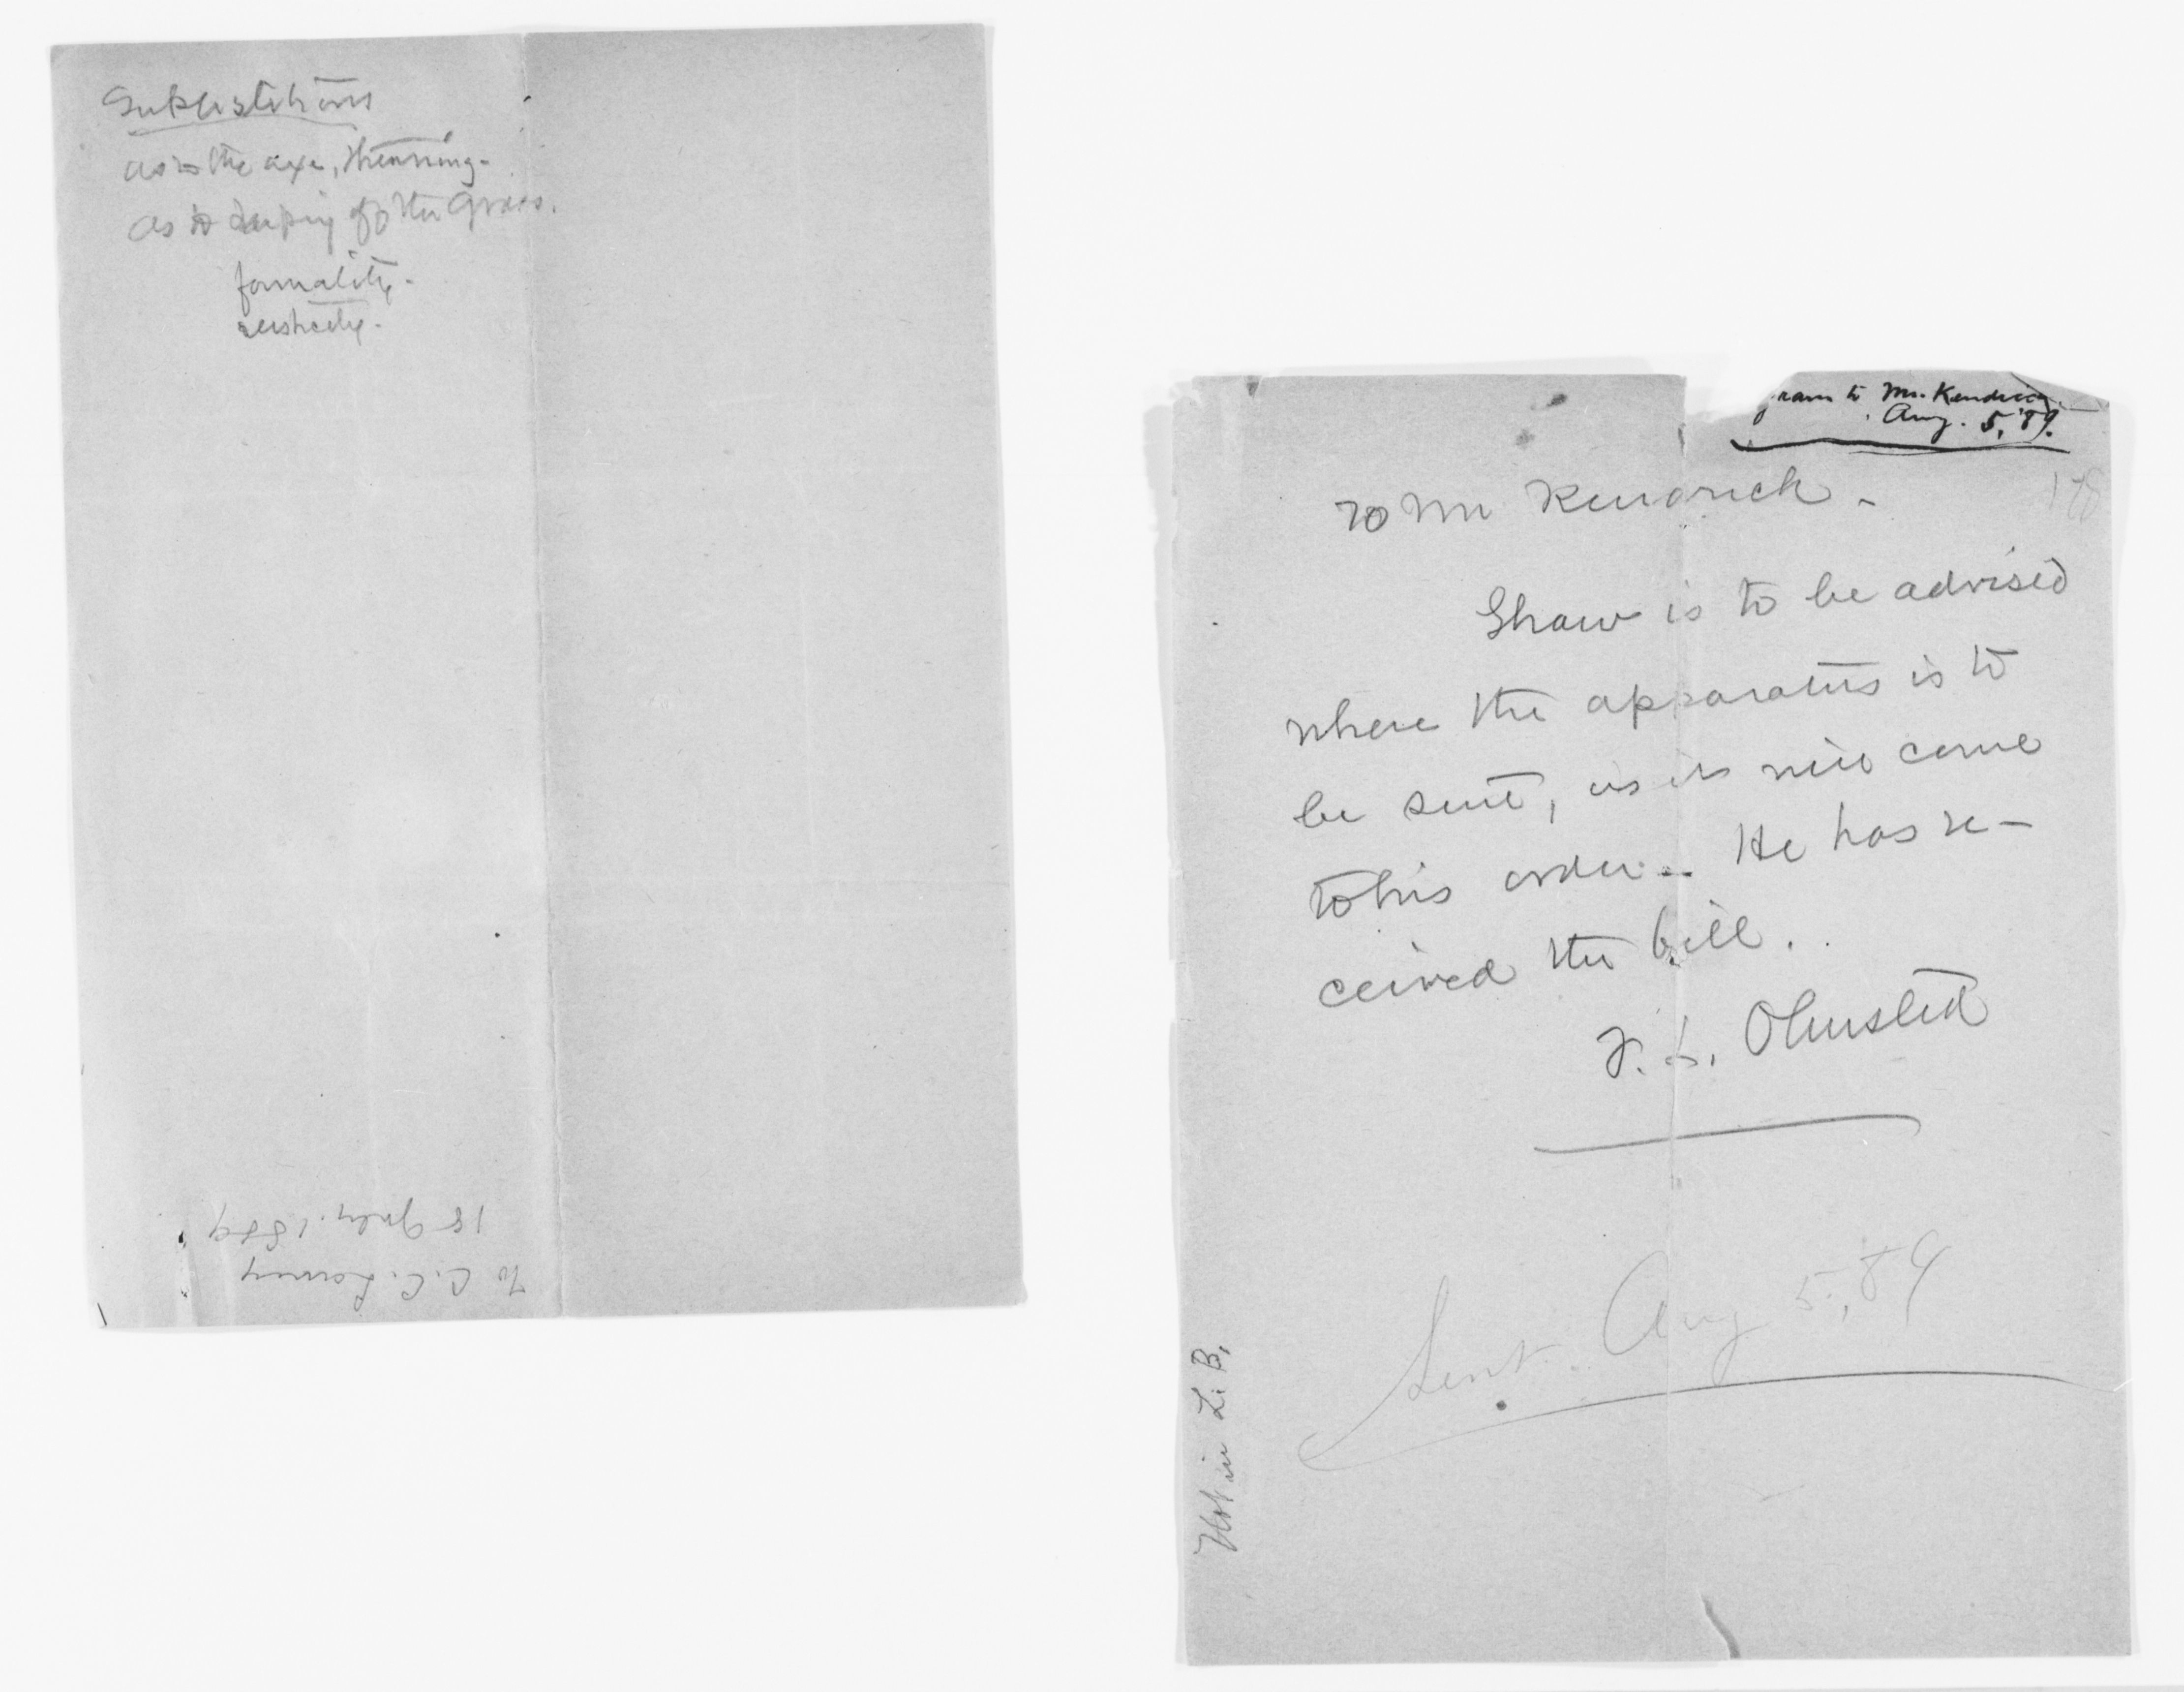 Superstitions
as to the axe, thinning.
as to keeping off the Grass.
formality.
rusticity.
18 July. 1889
To C.C.
gram to Mr. Kendrick.
Aug. 5, '89.
To Mr Kendrick -
Shaw is to be advised
where the apparatus is to
be sent, as it will come
to his order. He has re-
ceived the bill.
F. L. Olmsted
Sent. Aug 5, 89
Not in L. B.